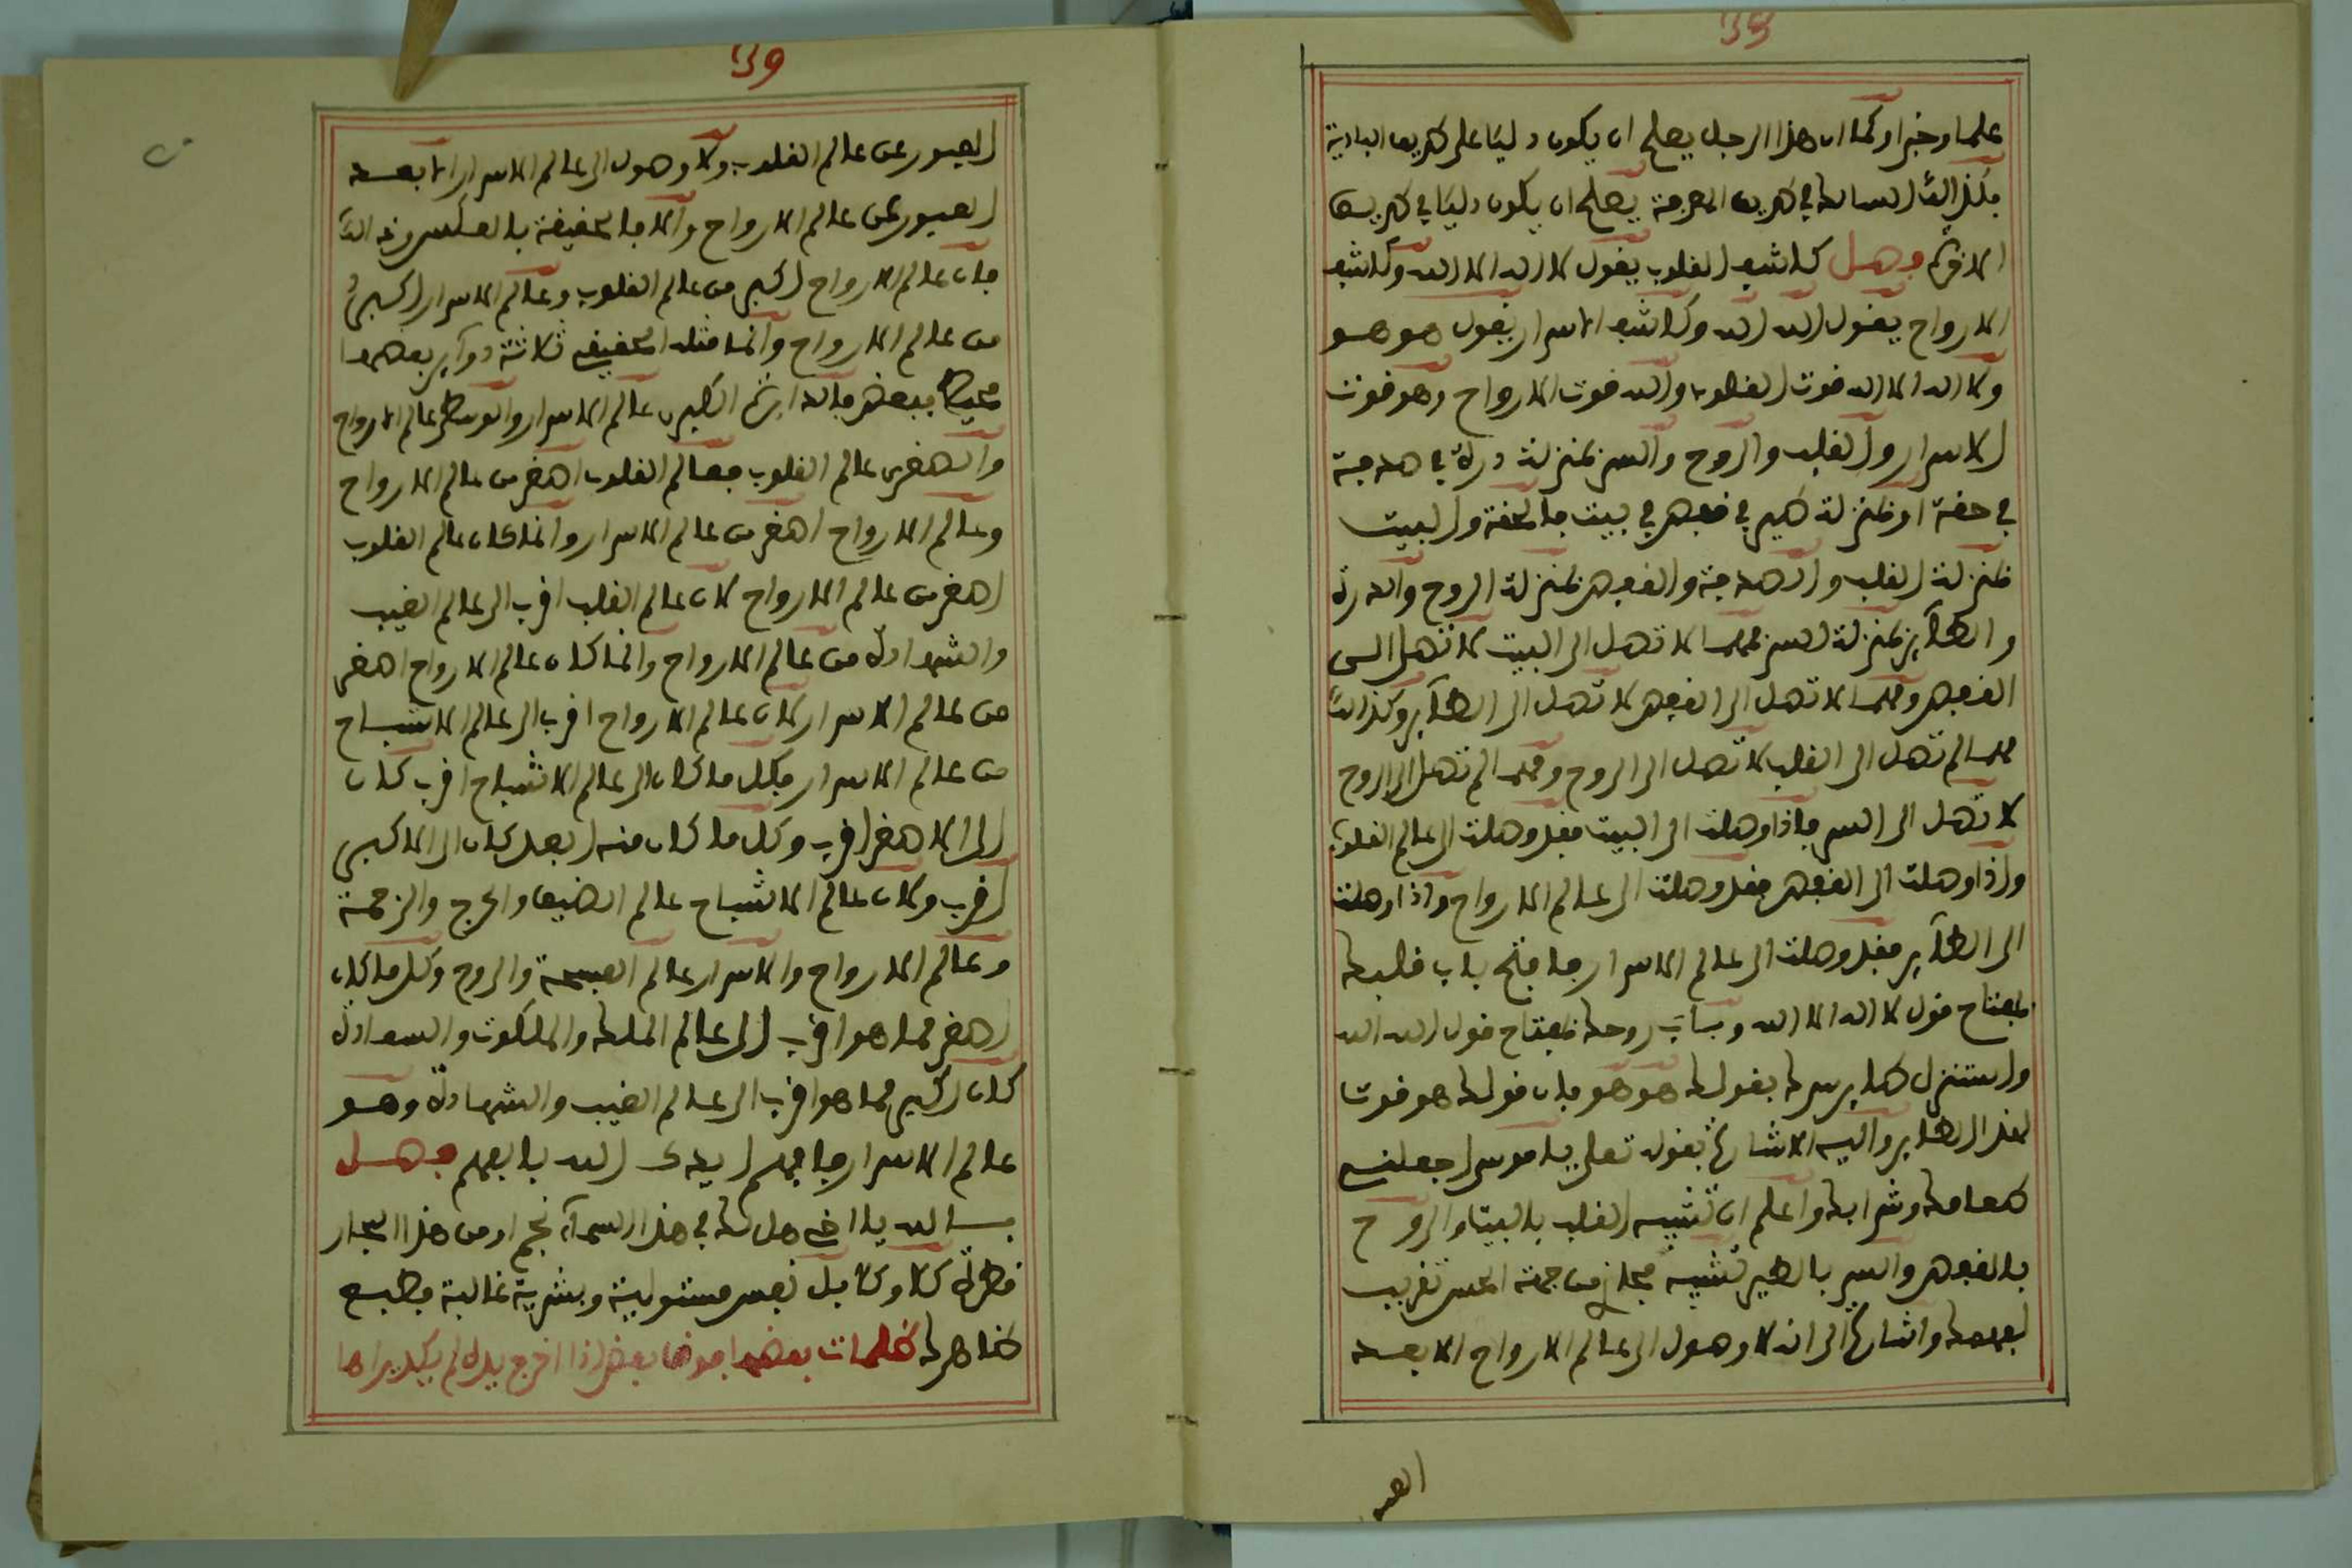 علما وخبرا وكما ان هذا الرجل يصلح ان يكون دليلا على طريق البادية
فكذالك السالك في طريق المعرفة يصلح ان يكون دليلا في طريق
الاخرة فصل كاشف القلوب يقول لا اله الا الله وكاشف
الارواح يقول الله الله وكاشف الاسرار يقول هو هو
ولا اله الا الله قوت القلوب والله قوت الارواح وهو قوت
الاسرار والقلب والروح والسر بمنزلة درة في صدفة
في حقة او بمنزلة طير في قفص في بيت فالحقة والبيت
بمنزلة القلب والصدفة والقفص بمنزلة الروح والدرة
والطآير بمنزلة السر فمهما لا تصل الى البيت لا تصل الى
القفص ومهما لا تصل الى القفص لا تصل الى الطآير وكذالك
مهما لم تصل الى القلب لا تصل الى الروح ومهما لم تصل الى الروح
لا تصل الى السر فاذا وصلت الى البيت فقد وصلت الى عالم القلوب
واذا وصلت الى القفص فقد وصلت الى عالم الارواح واذا وصلت
الى الطآير فقد وصلت الى عالم الاسرار فافتح باب قلبك
بمفتاح قول لا اله الا الله وباب روحك بمفتاح قول الله الله
واستنزل طاير سرك بقولك هو هو فان قولك هو قوت
لهذا الطاير واليه الاشارة بقوله تعلى يا موسى اجعلني
طعامك وشرابك واعلم ان تشبيه القلب بالبيت والروح
بالقفص والسر بالطير تشبيه مجاز من جهة الحس تقريب
لفهمك واشارة الى انه لا وصول الى عالم الارواح الا بعد
العبو
العبور عن عالم القلوب ولا وصول الى عالم الاسرار الا بعد
العبور عن عالم الارواح والا فالحقيقة بالعكس من ذالك
فان عالم الارواح اكبر من عالم القلوب وعالم الاسرار اكبر
من عالم الارواح وانما مثله الحقيقي ثلاثة دوآير بعضها
محيط ببعض فالدايرة الكبرى عالم الاسرار والوسطى عالم الارواح
والصغرى عالم القلوب فعالم القلوب اصغر من عالم الارواح
وعالم الارواح اصغر من عالم الاسرار وانما كان عالم القلوب
اصغر من عالم الارواح لان عالم القلب اقرب الى عالم الغيب
والشهادة من عالم الارواح وانما كان عالم الارواح اصغر
من عالم الاسرار لان عالم الارواح اقرب الى عالم الاشباح
من عالم الاسرار فكل ما كان الى عالم الاشباح اقرب كان
الى الاصغر اقرب وكل ما كان منه ابعد كان الى الاكبر
اقرب وكان عالم الاشباح عالم الضيق والحرج والزحمة
وعالم الارواح والاسرار عالم الفسحة والروح وكل ما كان
اصغر مما هو اقرب الى عالم الملك والملكوت والسعادة
كان اكبر مما هو اقرب الى عالم الغيب والشهادة وهو
عالم الاسرار فافهم ايدك الله يا بفهم فصل
بالله يا اخي هل لك في هذا السمآء نجم او من هذا البحار
قطرة كلا وكلا بل نفس مستولية وبشرية غالبة وطبع
ظاهرك ظلمات بعضها فوق بعض اذا اخرج يده لم يكد يراها